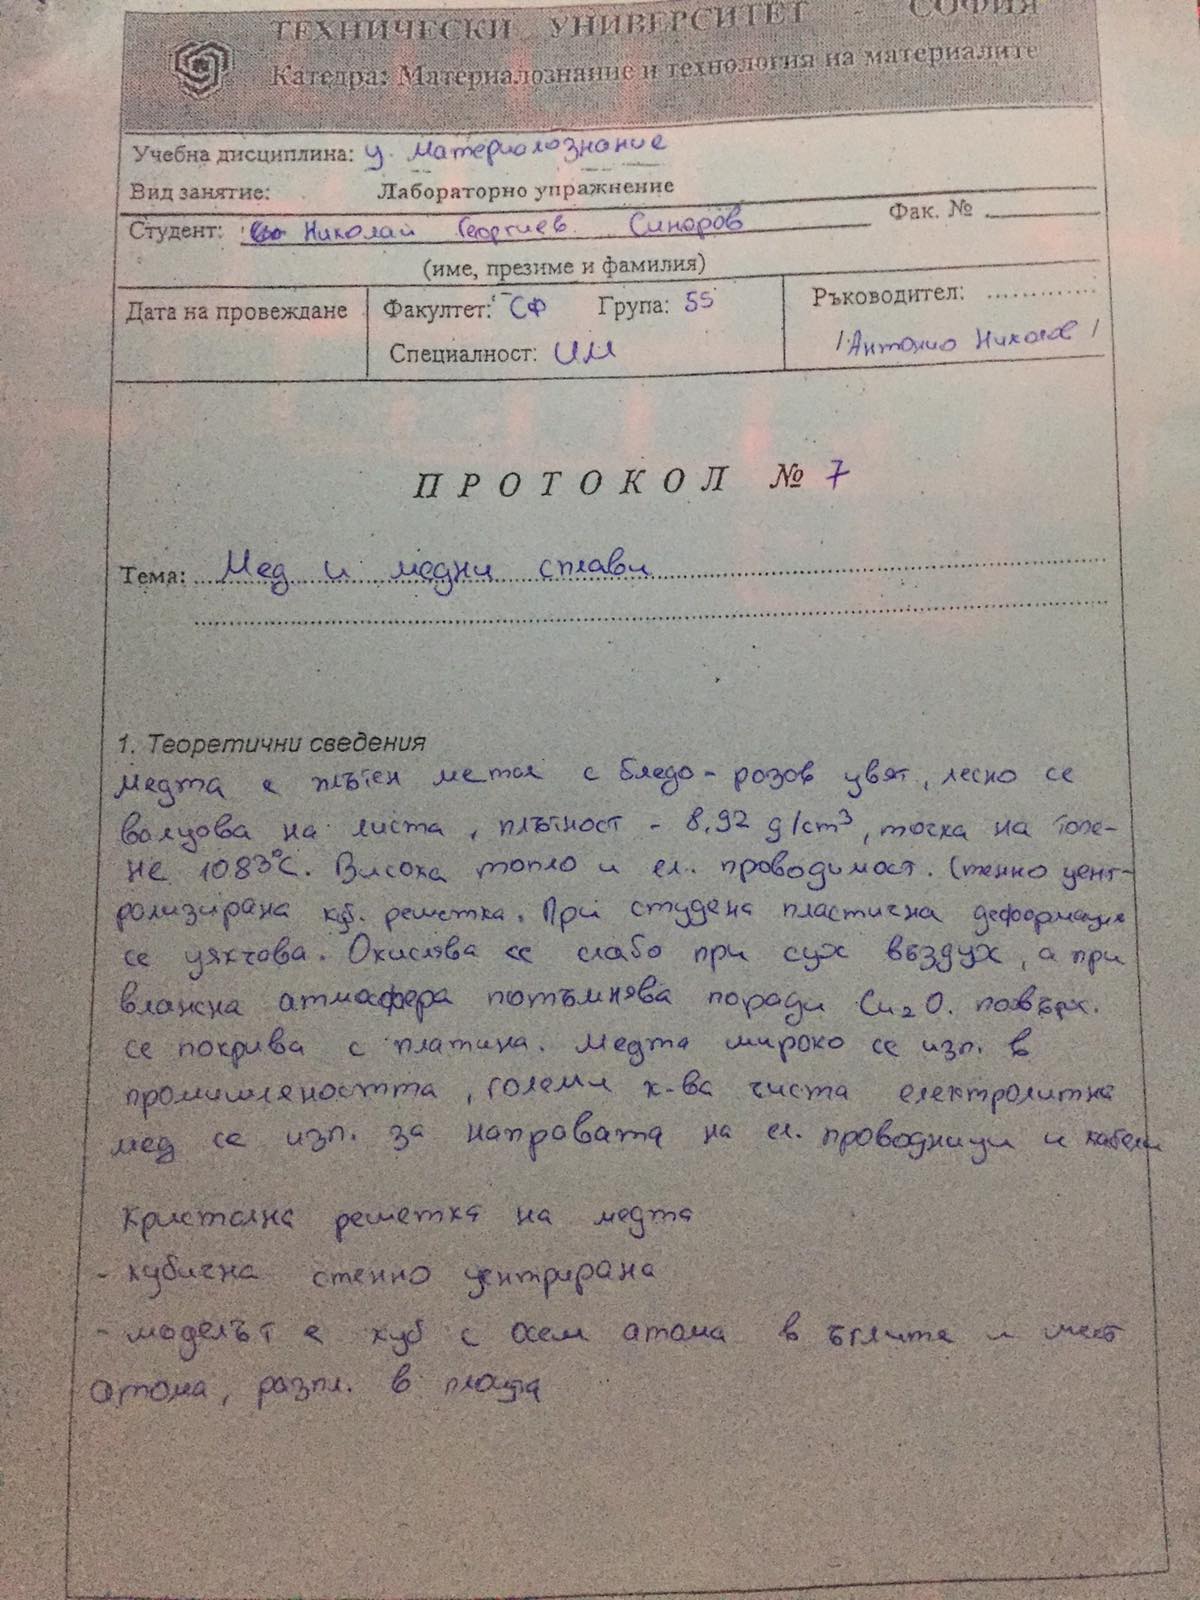 ТЕХНИЧЕСКИ УНИВЕРСИТЕТ - СОФИЯ
Катедра: Материалознание и технология на материалите
Учебна дисциплина: у. Материалознание
Вид занятие: Лабораторно упражнение
Студент: Николай Георгиев Синоров Фак. №
(име, презиме и фамилия)
Дата на провеждане Факултет: СФ Група: 55 Ръководител: ............
Специалност: ИМ /Антонио Николов/
ПРОТОКОЛ № 7
Тема: Мед и медни сплави
1. Теоретични сведения
Медта е плътен метал с бледо-розов цвят, лесно се
валцова на листа, плътност - 8,92 g/cm³, точка на топе-
не 1083°C. Висока топло и ел. проводимост. Стенно цент-
ролизирана куб. решетка. При студена пластична деформация
се уякчова. Окислява се слабо при сух въздух, а при
влажна атмосфера потъмнява поради Cu₂O. повърх.
се покрива с платина. Медта широко се изп. в
промишлеността, големи к-ва чиста електролитна
мед се изп. за направата на ел. проводници и кабели
Кристална решетка на медта
- кубична стенно центрирана
- моделът е куб с осем атома в ъглите и шест
атома, разпл. в площта